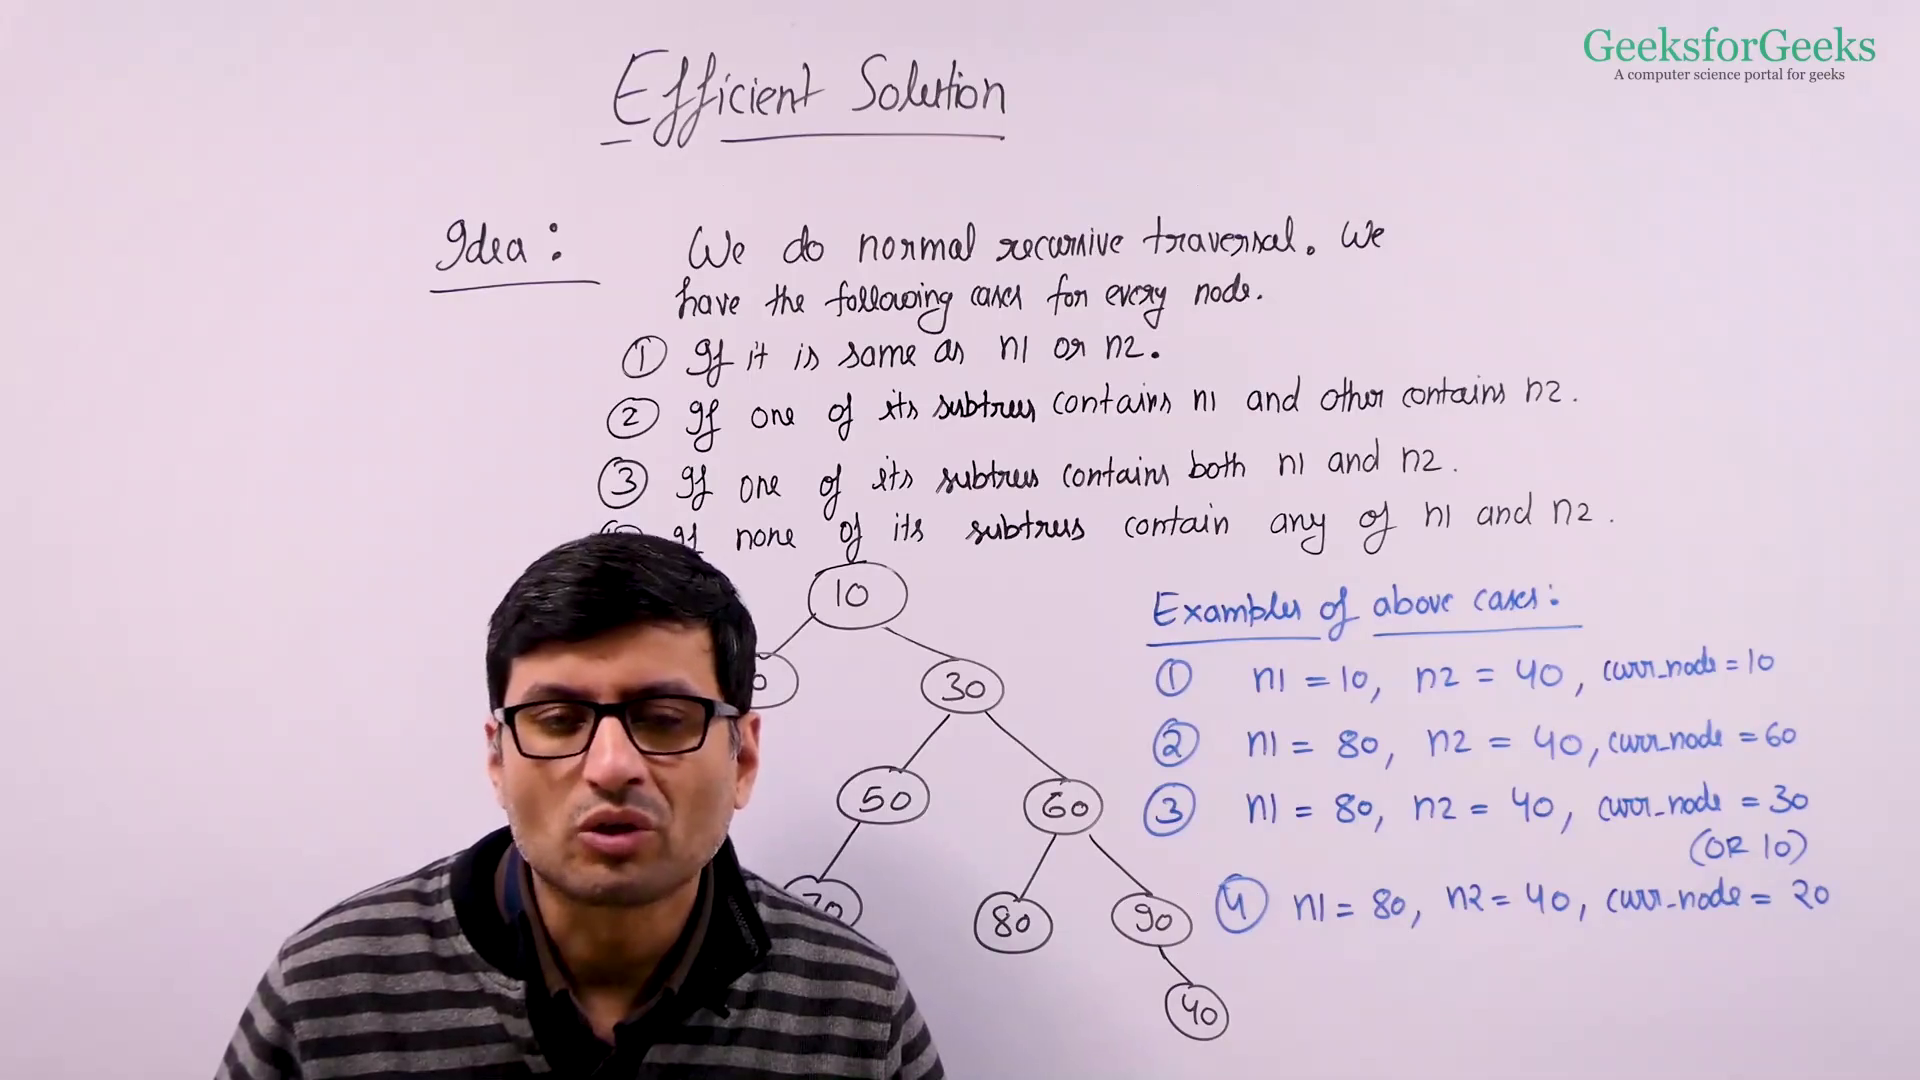 GeeksforGeeks
A computer science portal for geeks
Efficient Solution
Idea : We do normal recursive traversal. We
have the following cases for every node.
① If it is same as n1 or n2.
② If one of its subtrees contains n1 and other contains n2.
③ If one of its subtrees contains both n1 and n2.
If none of its subtrees contain any of n1 and n2.
10
30
50
60
70
80
90
40
Examples of above cases :
① n1 = 10, n2 = 40, curr_node = 10
② n1 = 80, n2 = 40, curr_node = 60
③ n1 = 80, n2 = 40, curr_node = 30
(OR 10)
④ n1 = 80, n2 = 40, curr_node = 20